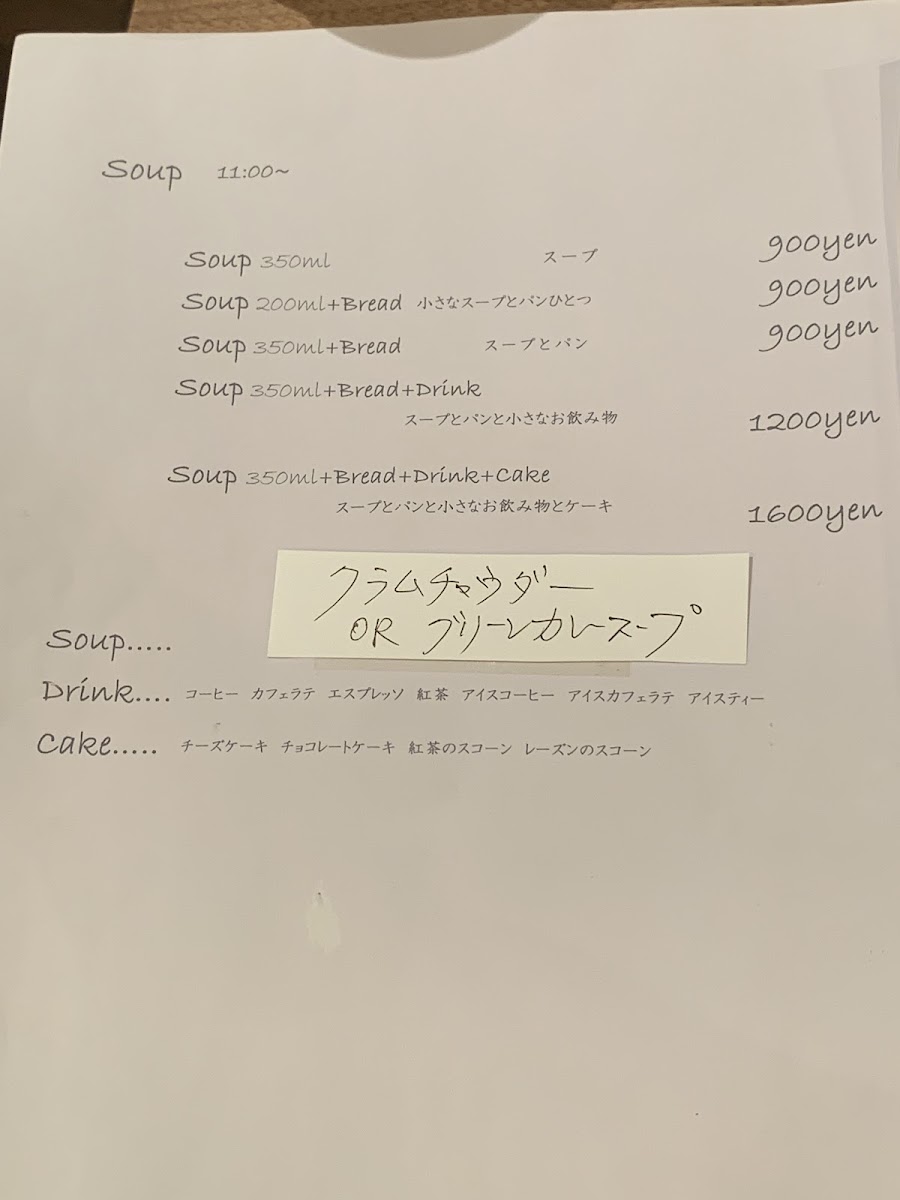 Soup 11:00~
Soup 350ml スープ 900yen
Soup 200ml+Bread 小さなスープとパンひとつ 900yen
Soup 350ml+Bread スープとパン 900yen
Soup 350ml+Bread+Drink
スープとパンと小さなお飲み物 1200yen
Soup 350ml+Bread+Drink+Cake
スープとパンと小さなお飲み物とケーキ 1600yen
クラムチャウダー
OR グリーンカレースープ
Soup.....
Drink.... コーヒー カフェラテ エスプレッソ 紅茶 アイスコーヒー アイスカフェラテ アイスティー
Cake..... チーズケーキ チョコレートケーキ 紅茶のスコーン レーズンのスコーン